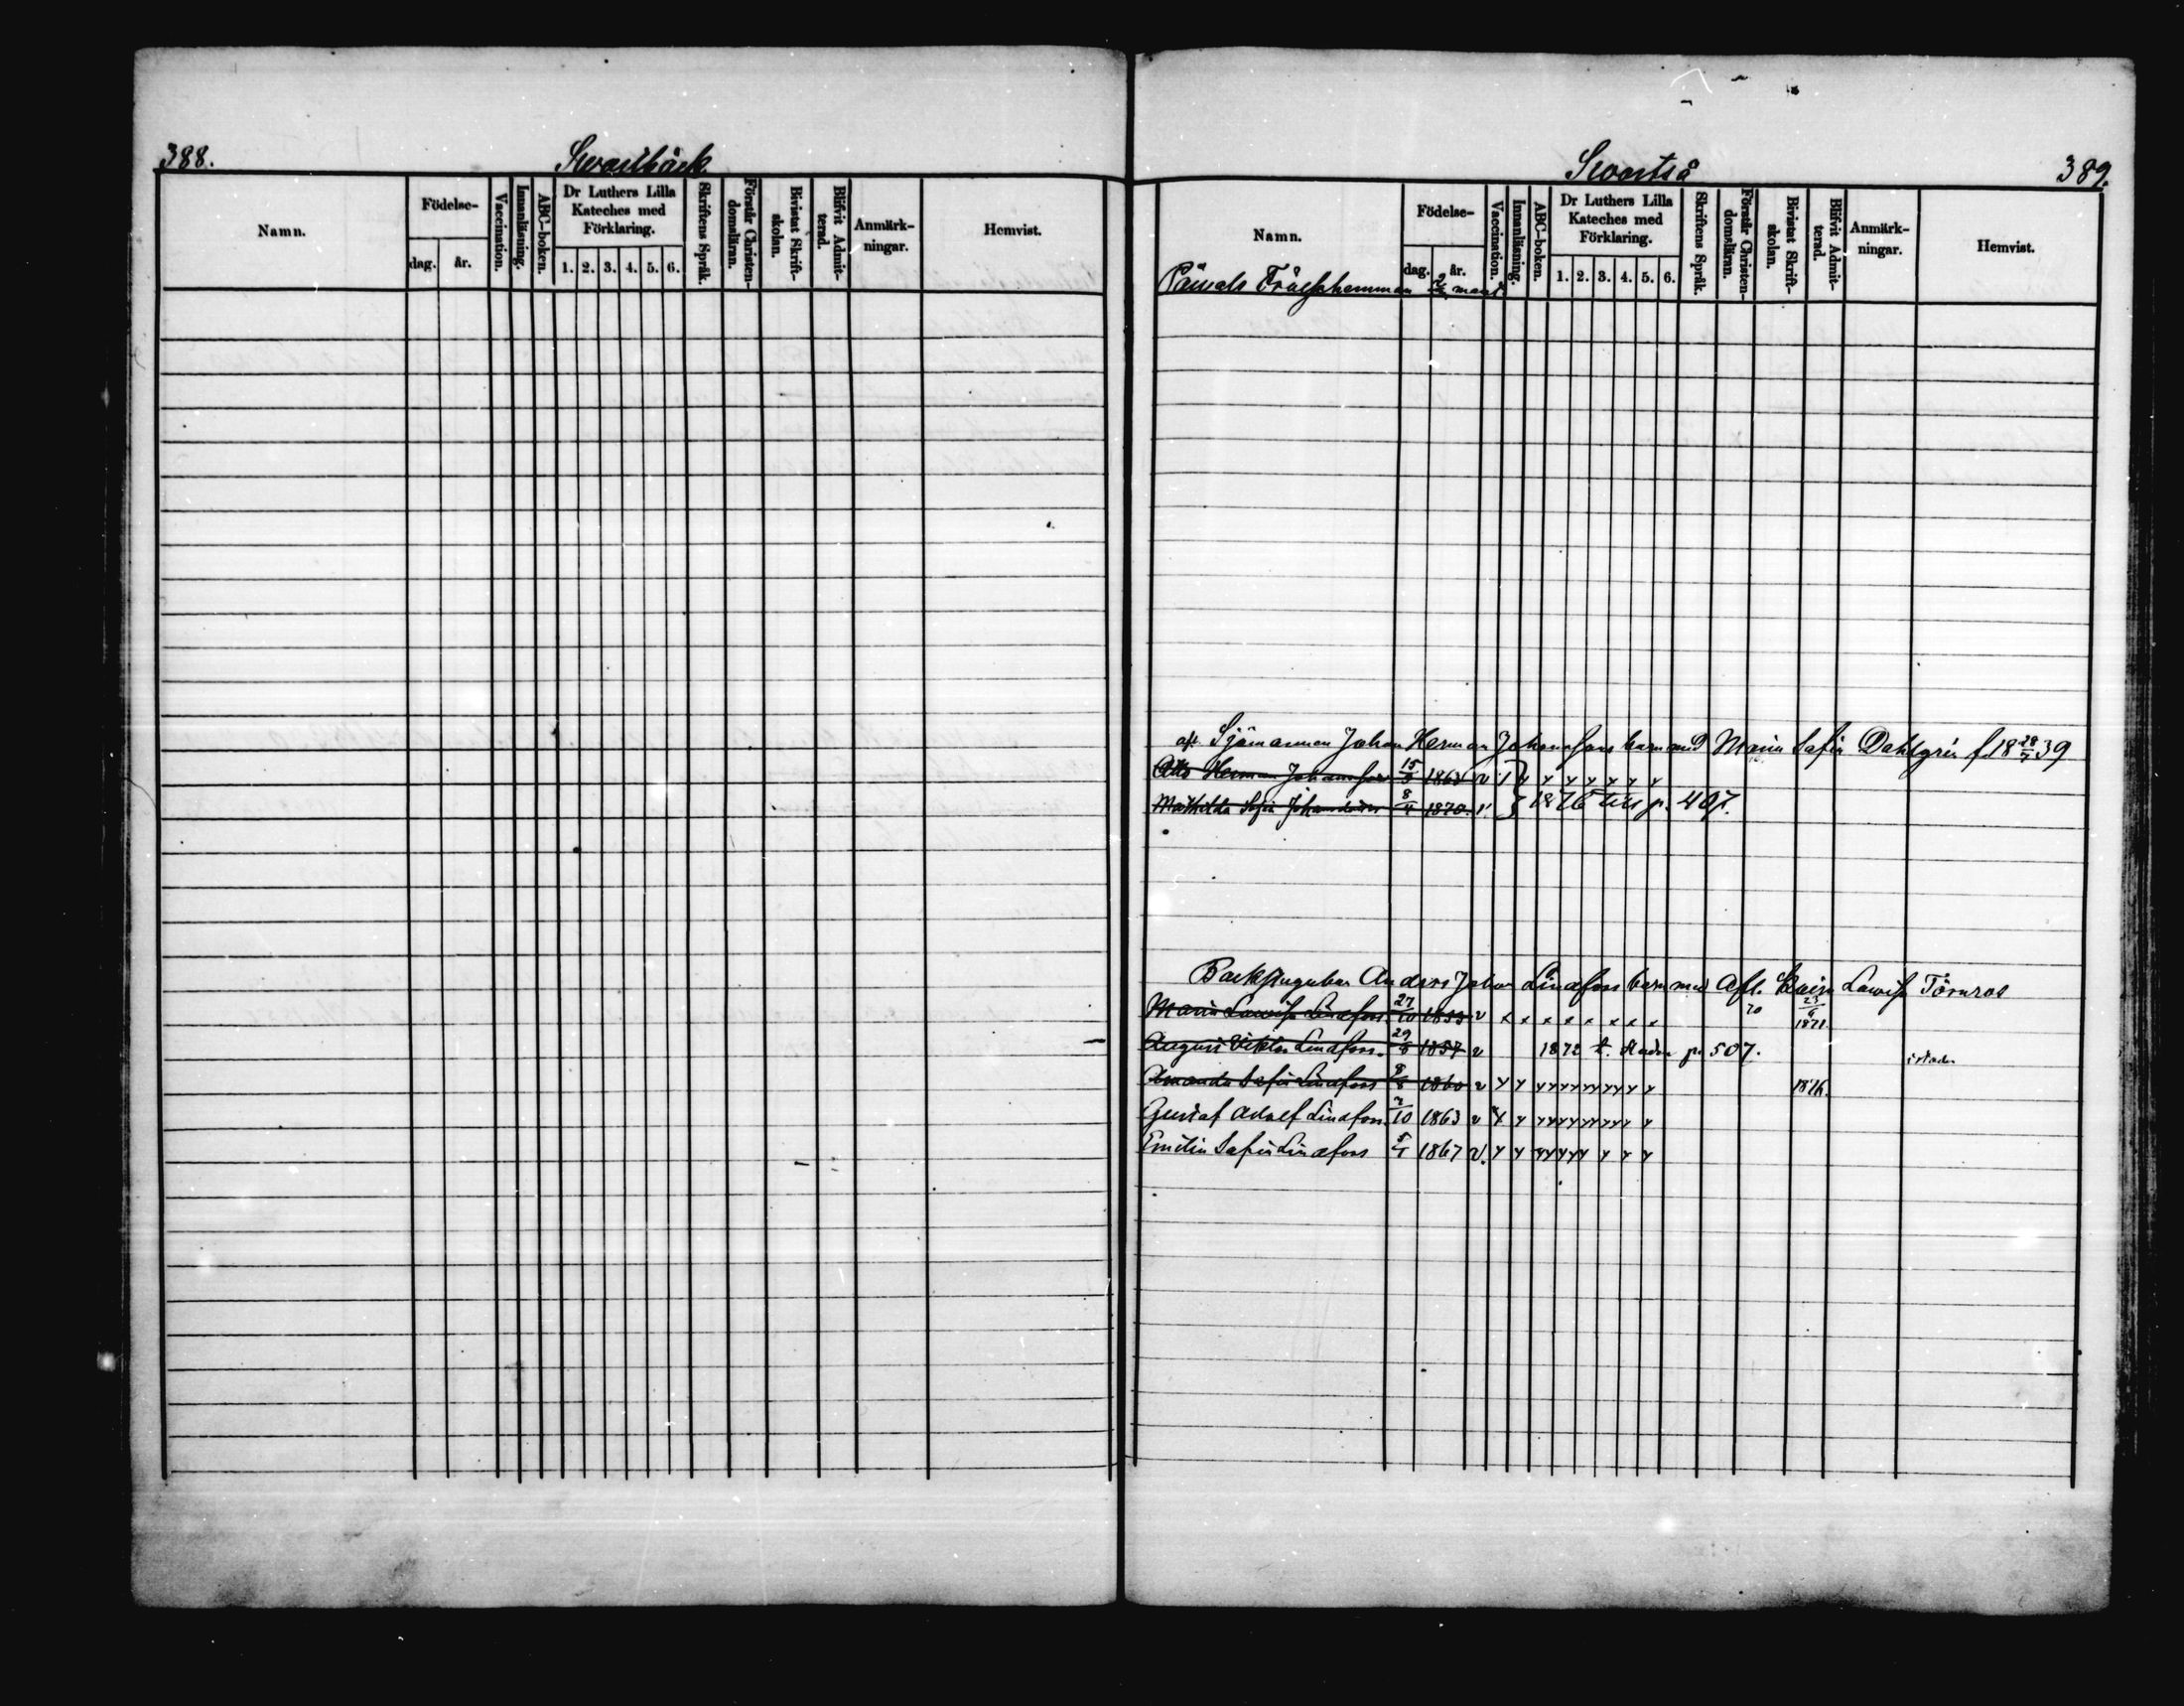 388.
Swartbäck
Namn.
Födelse-
dag.
år.
Vaccination.
Innanläsning.
ABC-boken.
Dr Luthers Lilla
Kateches med
Förklaring.
1. 2. 3. 4. 5. 6.
Skriftens Språk.
Förstår Christen-
domsläran.
Bivistat Skrift-
skolan.
Blifvit Admit-
terad.
Anmärk-
ningar.
Hemvist.
Swartså
389.
Namn.
Födelse-
dag.
år.
Vaccination.
Innanläsning.
ABC-boken.
Dr Luthers Lilla
Kateches med
Förklaring.
1. 2. 3. 4. 5. 6.
Skriftens Språk.
Förstår Christen-
domsläran.
Bivistat Skrift-
skolan.
Blifvit Admit-
terad.
Anmärk-
ningar.
Hemvist.
mant.
afl. Sjömannen Johan Herman Johanssons barn med Maria Sofia Dahlgrén f. 18 28/7 39
Otto Herman Johansson 15/3 1863 v
Mathilda Sofia 8/4 1870. v. } 1876 till p. 407.
Anders Johan Lindfors barn med Afl. Lovisa Törnros
Maria Lovisa Lindfors. 27/10 1853 v x x x x x x x x 70 23/6 1871.
August Viktor Lindfors. 29/8 1857 v 1872 t. Staden p. 507.
i stad.
Amanda Sofia Lindfors 8/8 1860 v 1876.
Gustaf Adolf Lindfors. 7/10 1863 v
Emilia Sofia Lindfors 5/1 1867 v.